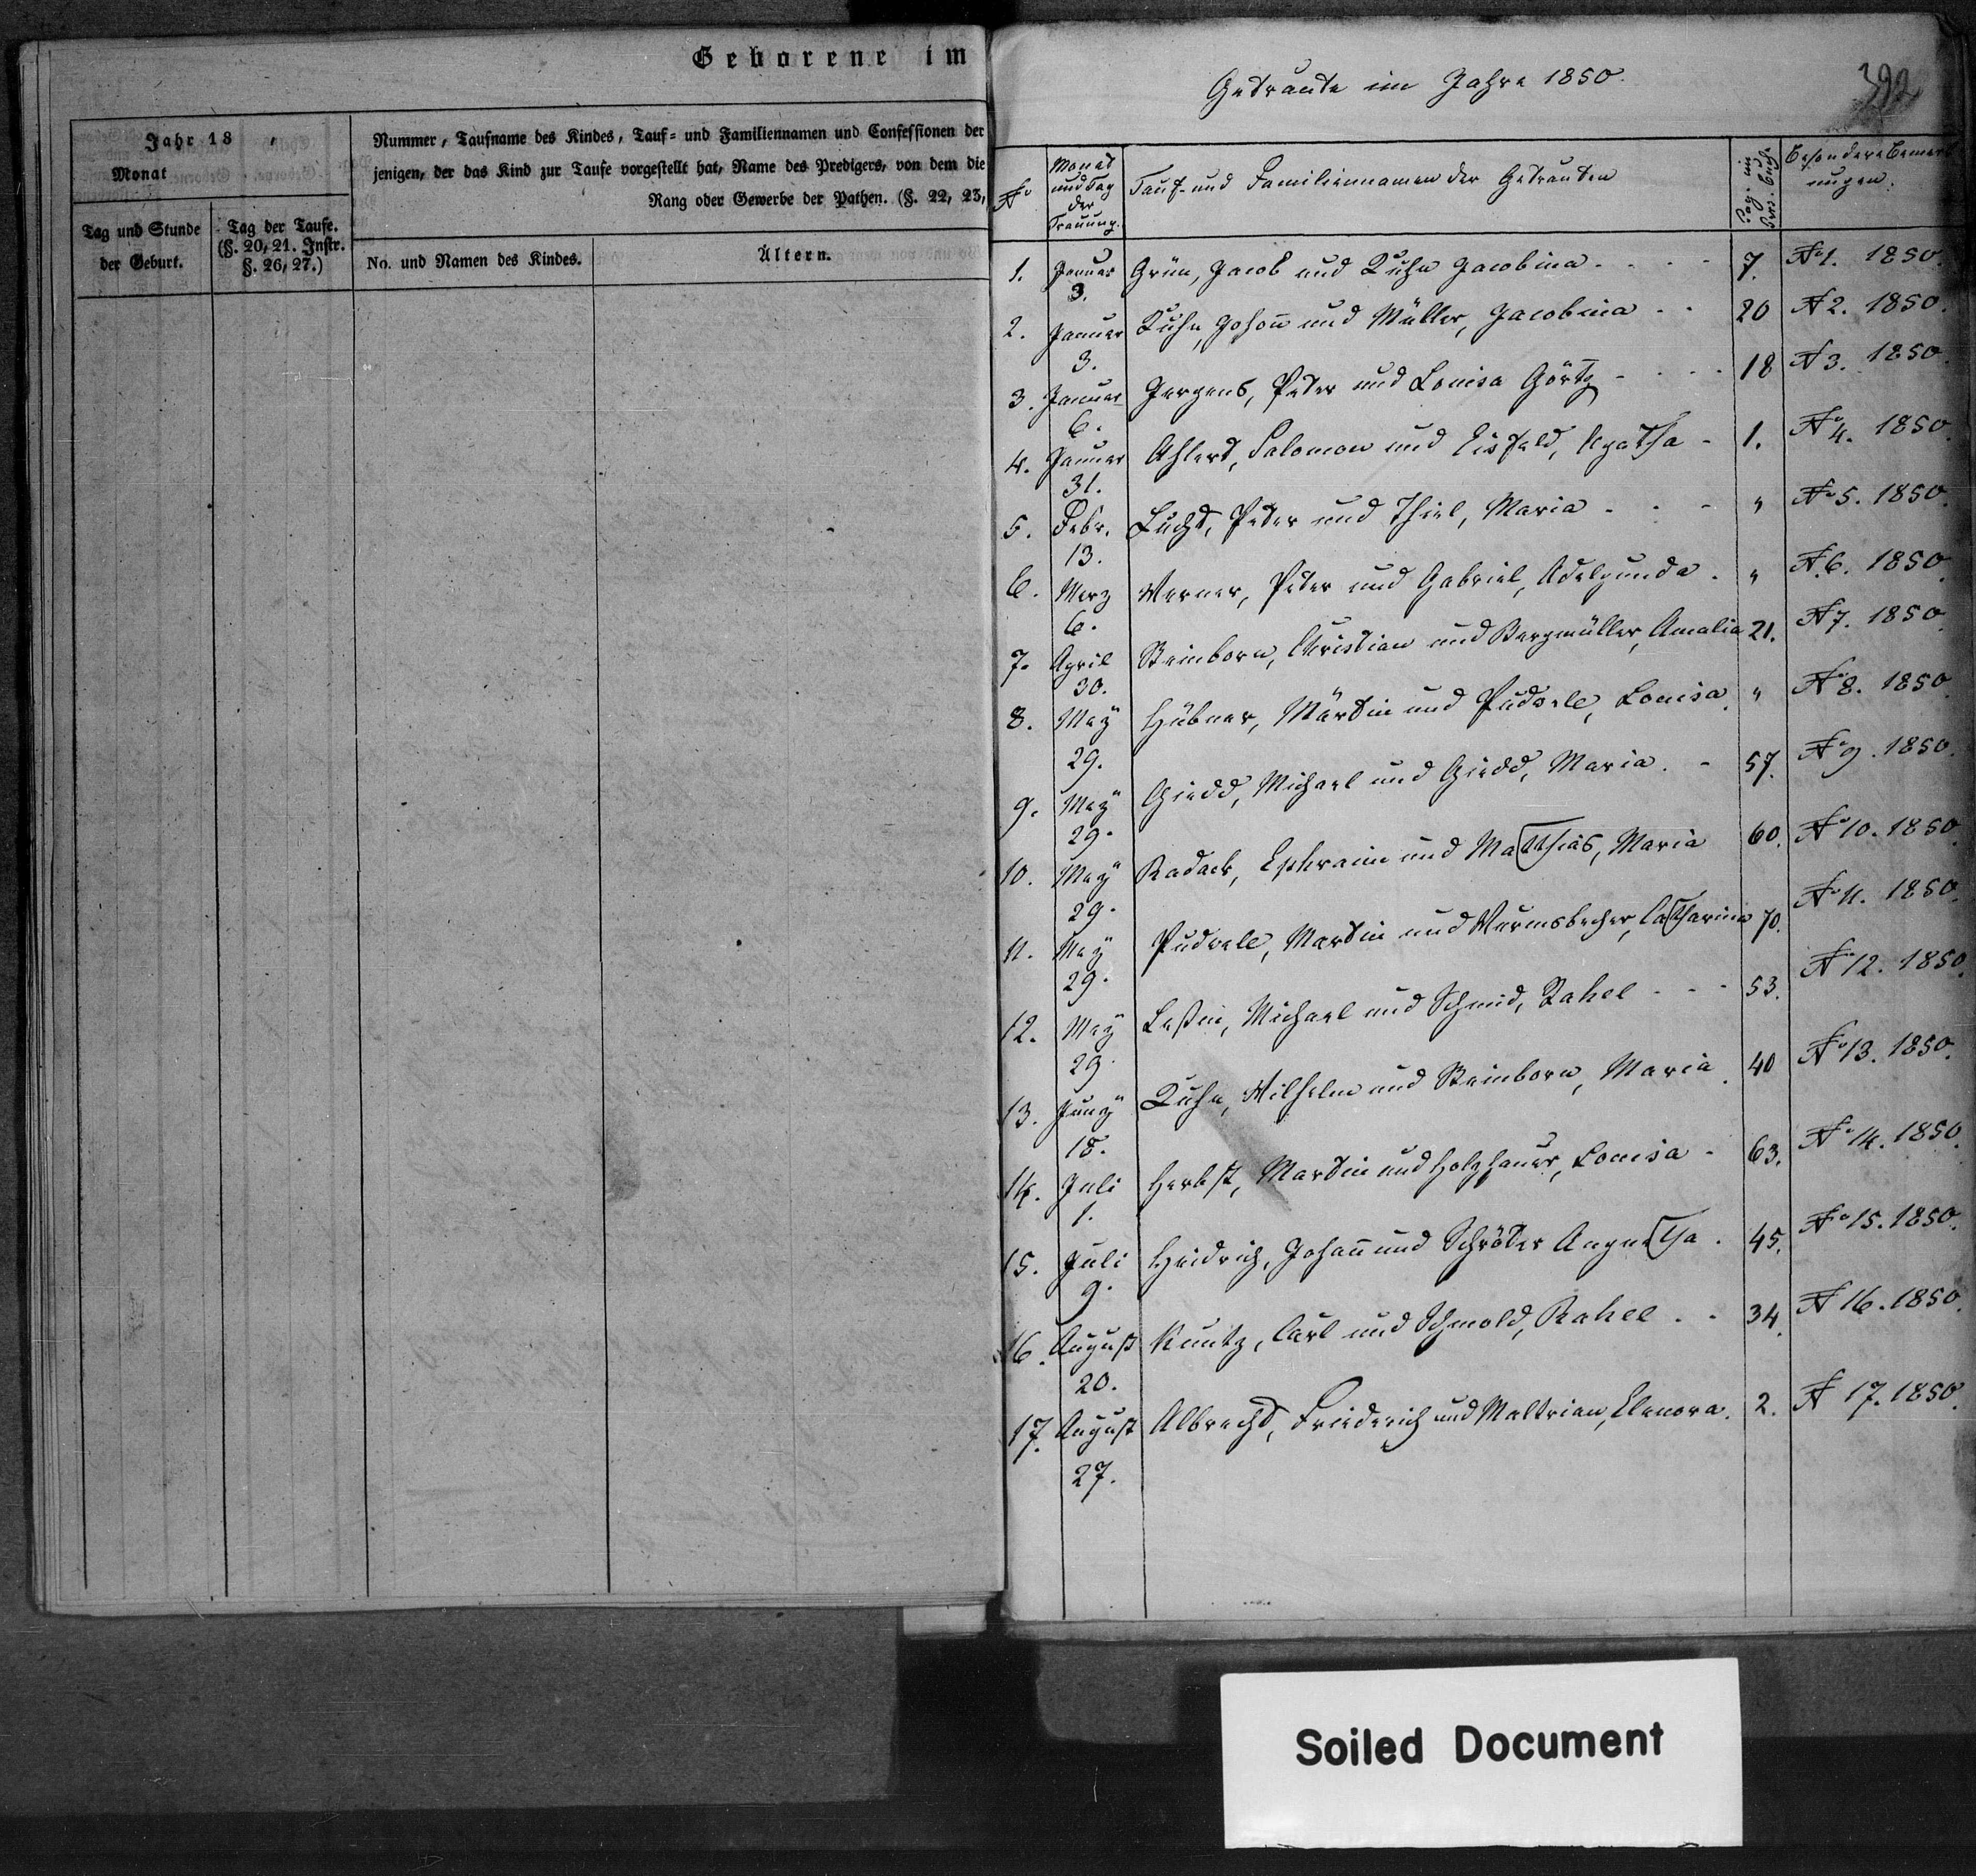 Geborene im
Jahr 18
Monat
Tag und Stunde
der Geburt.
Tag der Taufe.
(§. 20, 21. Instr.
§. 26, 27.)
Nummer, Taufname des Kindes, Tauf- und Familiennamen und Confessionen der
jenigen, der das Kind zur Taufe vorgestellt hat, Name des Predigers, von dem die
Rang oder Gewerbe der Pathen. (§. 22, 23,
No. und Namen des Kindes.
Ältern.
Getraute im Jahre 1850.
392
No
Monat
und Tag
der
Trauung.
Tauf- und Familiennamen der Getrauten
Pag. im
Pers. Buche
Besondere Bemerk
ungen.
1. Januar 3. Grün, Jacob und Kuhn Jacobina 7. No 1. 1850.
2. Januar 3. Kuhn, Johan̅ und Müller, Jacobina 20 No 2. 1850.
3. Januar 6. Jergens, Peter und Louisa Görtz 18 No 3. 1850.
4. Januar 31. Ahlert, Salomon und Eisfeld, Agatha 1. No 4. 1850.
5. Febr. 13. Lucht, Peter und Thiel, Maria " No 5. 1850.
6. Merz 6. Werner, Peter und Gabriel, Adelgunda " No 6. 1850.
7. April 30. Steinborn, Christian und Bergmüller, Amalia 21. No 7. 1850.
8. May 29. Hübner, Martin und Pudrele, Louisa " No 8. 1850.
9. May 29. Giedd, Michael und Giedd, Maria 57. No 9. 1850.
10. May 29. Radack, Ephraim und Matthias, Maria 60. No 10. 1850.
11. May 29. Pudrele, Martin und Wurmsbecher, Catharina 70. No 11. 1850.
12. May 29. Leßin, Michael und Schmid, Rahel 53. No 12. 1850.
13. Juny 18. Kuhn, Wilhelm und Steinborn, Maria 40 No 13. 1850.
14. Juli 1. Herbst, Martin und Holzhauer, Louisa 63. No 14. 1850.
15. Juli 9. Heidrich, Johan̅ und Schröder Angnetha 45. No 15. 1850.
16. August 20. Kuntz, Carl und Schmold, Rahel 34. No 16. 1850.
17. August 27. Albrecht, Friederich und Maltrian, Elenora. 2. No 17. 1850.
Soiled Document